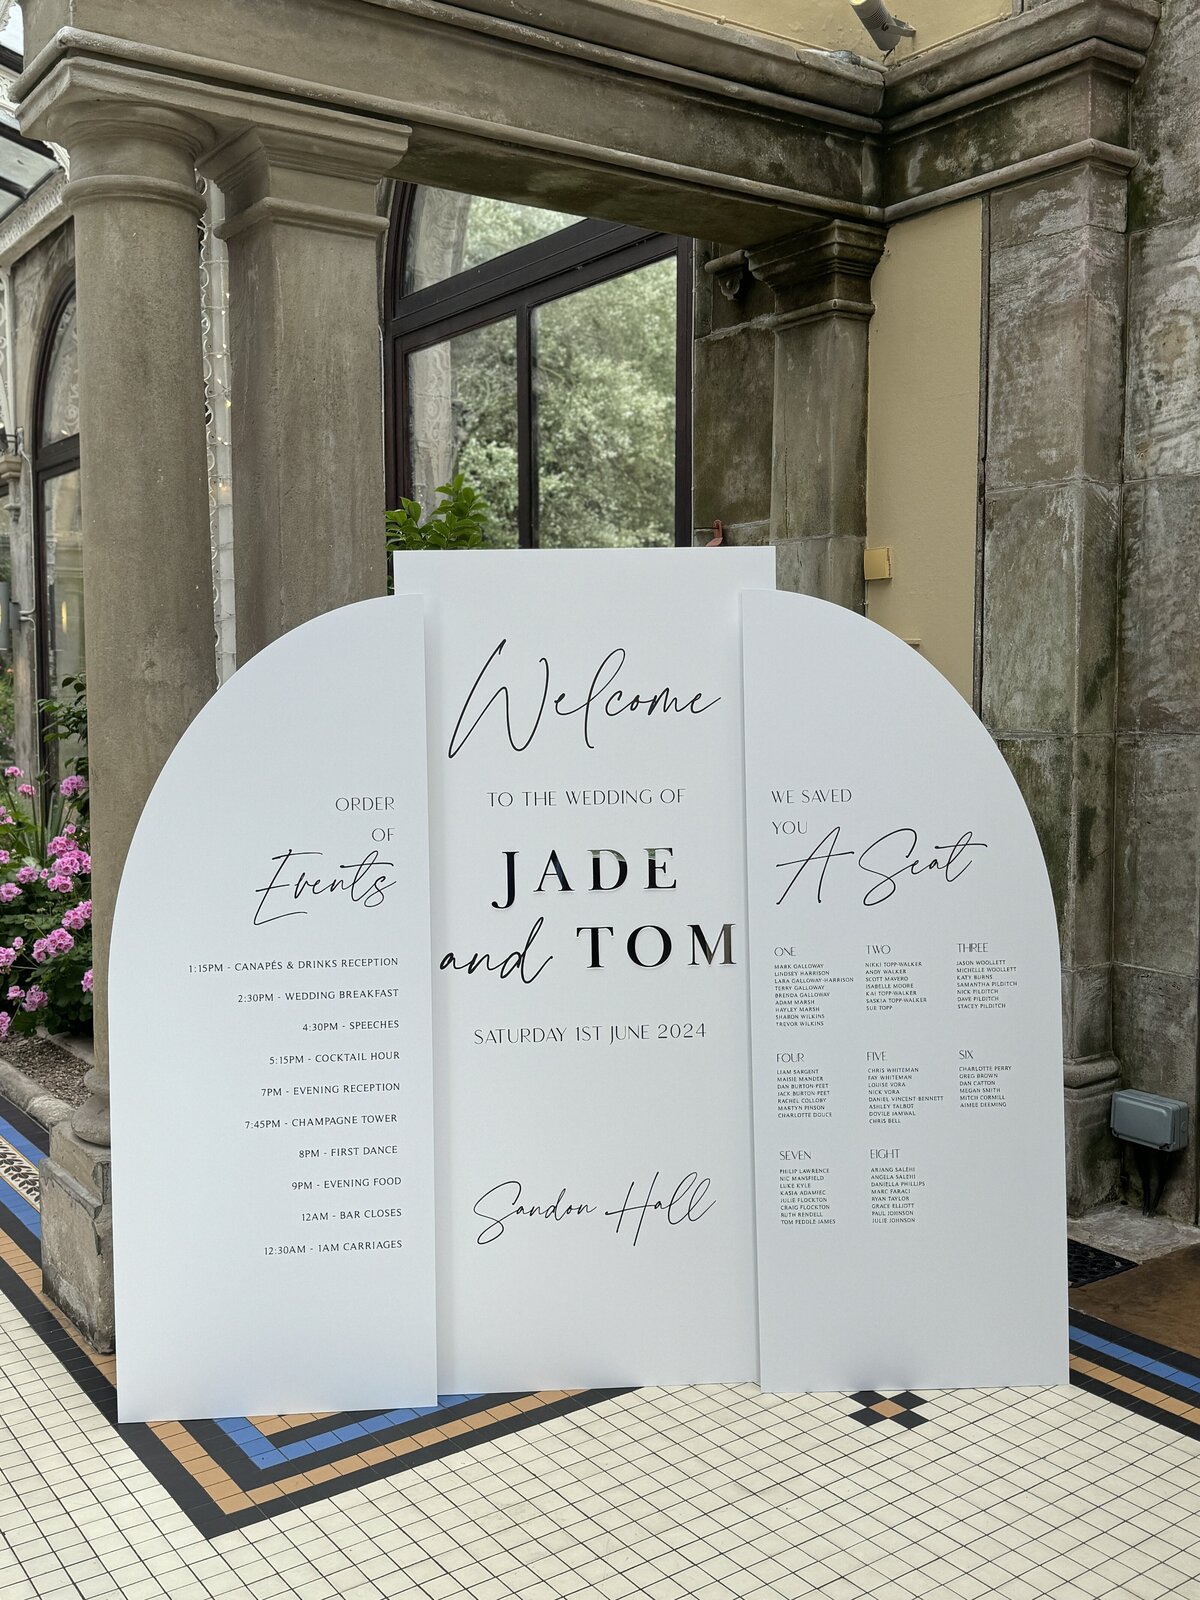 ORDER
OF
Events
1:15PM - CANAPÉS & DRINKS RECEPTION
2:30PM - WEDDING BREAKFAST
4:30PM - SPEECHES
5:15PM - COCKTAIL HOUR
7PM - EVENING RECEPTION
7:45PM - CHAMPAGNE TOWER
8PM - FIRST DANCE
9PM - EVENING FOOD
12AM - BAR CLOSES
12:30AM - 1AM CARRIAGES
Welcome
TO THE WEDDING OF
JADE
and TOM
SATURDAY 1ST JUNE 2024
Sandon Hall
WE SAVED
YOU
A Seat
ONE
MARK GALLOWAY
LINDSEY HARRISON
LARA GALLOWAY-HARRISON
TERRY GALLOWAY
BRENDA GALLOWAY
ADAM MARSH
HAYLEY MARSH
SHARON WILKINS
TREVOR WILKINS
TWO
NIKKI TOPP-WALKER
ANDY WALKER
SCOTT MAVERO
ISABELLE MOORE
KAI TOPP-WALKER
SASKIA TOPP-WALKER
SUE TOPP
THREE
JASON WOOLLETT
MICHELLE WOOLLETT
KATY BURNS
SAMANTHA PILDITCH
NICK PILDITCH
DAVE PILDITCH
STACEY PILDITCH
FOUR
LIAM SARGENT
MAISIE MANDER
DAN BURTON-PEET
JACK BURTON-PEET
RACHEL COLLOBY
MARTYN PINSON
CHARLOTTE DOUCE
FIVE
CHRIS WHITEMAN
FAY WHITEMAN
LOUISE VORA
NICK VORA
DANIEL VINCENT-BENNETT
ASHLEY TALBOT
DOVILE JAMWAL
CHRIS BELL
SIX
CHARLOTTE PERRY
GREG BROWN
DAN CATTON
MEGAN SMITH
MITCH CORMILL
AIMEE DEEMING
SEVEN
PHILIP LAWRENCE
NIC MANSFIELD
LUKE KYLE
KASIA ADAMIEC
JULIE FLOCKTON
CRAIG FLOCKTON
RUTH RENDELL
TOM PEDDLE JAMES
EIGHT
ARJANG SALEHI
ANGELA SALEHI
DANIELLA PHILLIPS
MARC FARACI
RYAN TAYLOR
GRACE ELLIOTT
PAUL JOHNSON
JULIE JOHNSON